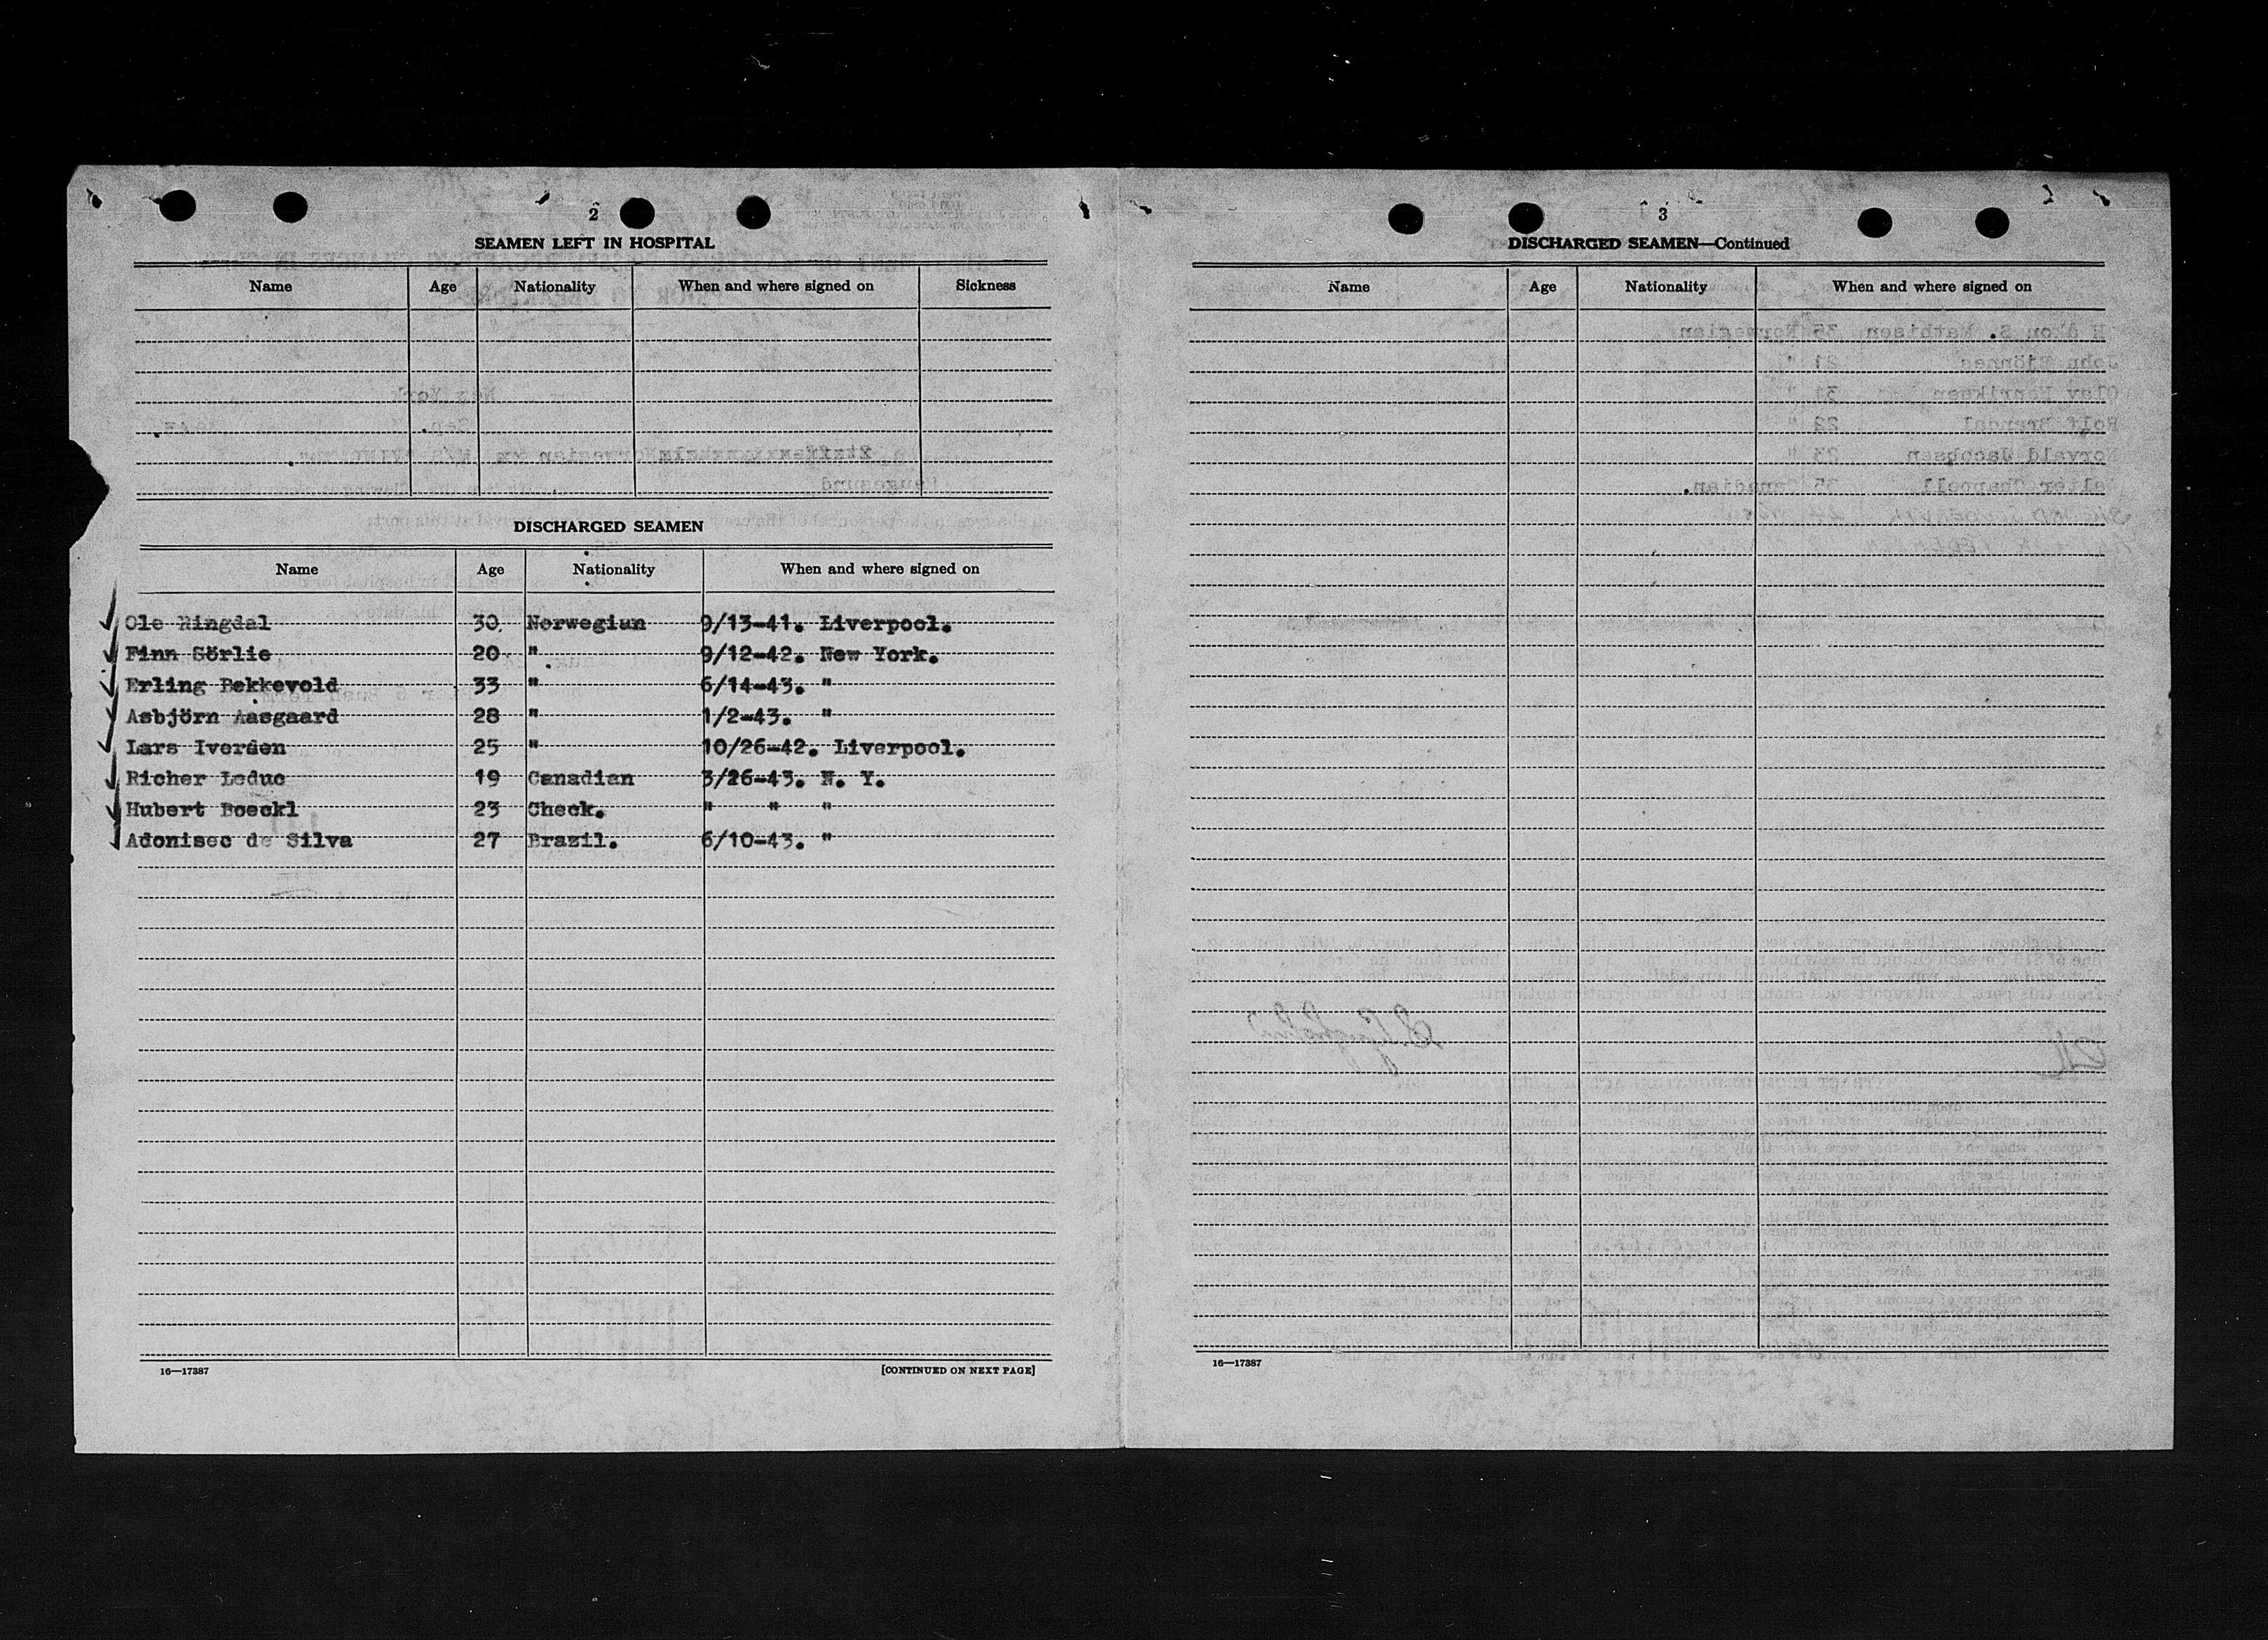 2
SEAMEN LEFT IN HOSPITAL
Name Age Nationality When and where signed on Sickness
DISCHARGED SEAMEN
Name Age Nationality When and where signed on
Ole Ringdal 30 Norwegian 9/13-41. Liverpool.
Finn Sörlie 20 " 9/12-42. New York.
Erling Bekkevold 33 " 6/14-43. "
Asbjörn Aasgaard 28 " 1/2-43. "
Lars Iversen 25 " 10/26-42. Liverpool.
Richer Leduc 19 Canadian 3/26-43. N. Y.
Hubert Boeckl 23 Check. " " "
Adonisec de Silva 27 Brazil. 6/10-43. "
16—17387 [CONTINUED ON NEXT PAGE]
3
DISCHARGED SEAMEN—Continued
Name Age Nationality When and where signed on
16—17387